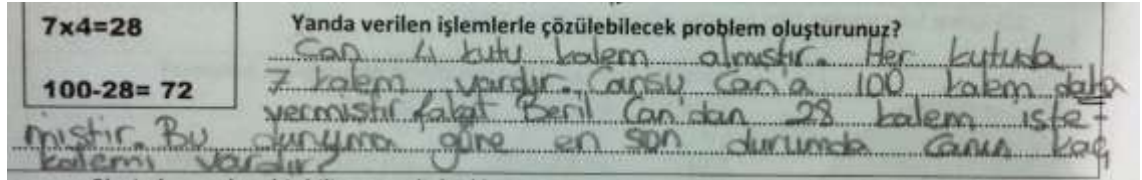 7x4=28
Yanda verilen işlemlerle çözülebilecek problem oluşturunuz?
Can 4 kutu kalem almıştır. Her kutuda
100-28= 72
7 kalem vardır. Cansu Can'a 100 kalem daha
vermiştir fakat Beril Can'dan 28 kalem iste-
miştir. Bu duruma güre en son durumda Canın kaç
kalemi vardır?